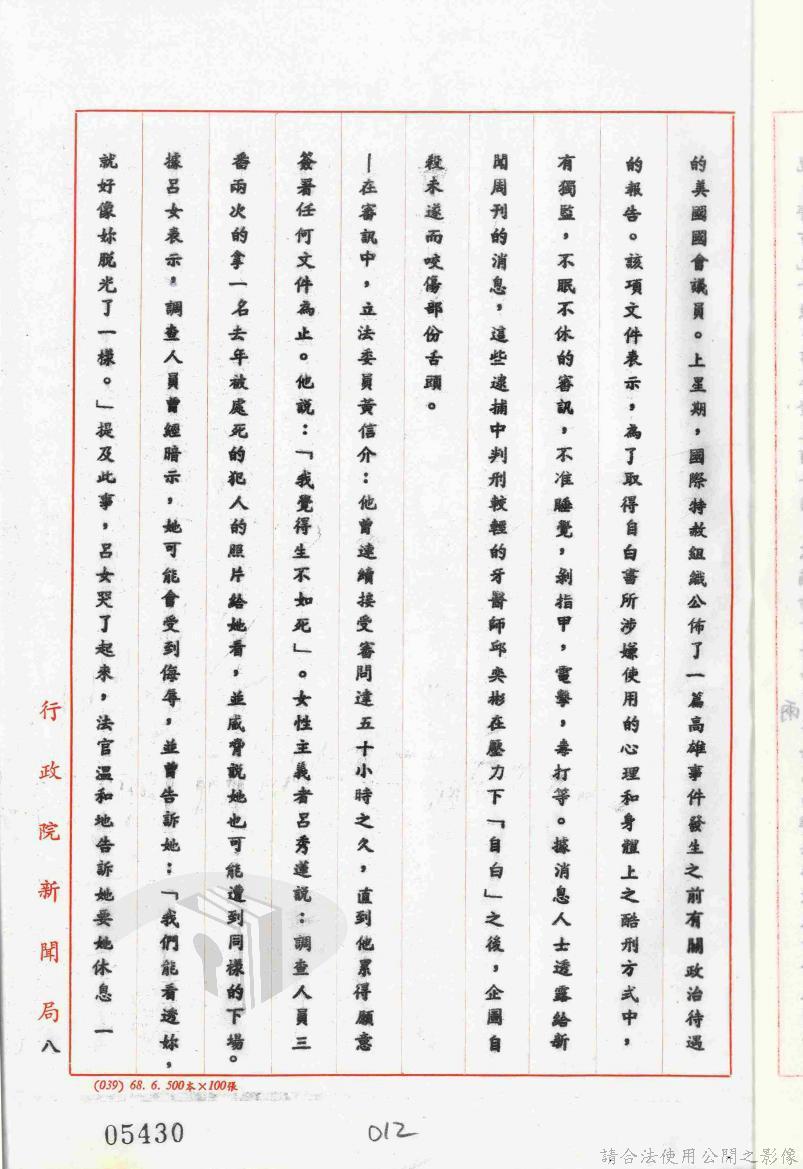 的美國國會議員。上星期，國際特赦組織公佈了一篇高雄事件發生之前有關政治待遇
的報告。該項文件表示，為了取得自白書所涉嫌使用的心理和身體上之酷刑方式中，
有獨監，不眠不休的審訊，不准睡覺，剝指甲，電擊，毒打等。據消息人士透露給新
聞周刊的消息，這些逮捕中判刑較輕的牙醫師邱奕彬在壓力下「自白」之後，企圖自
殺未遂而咬傷部份舌頭。
—在審訊中，立法委員黃信介：他曾連續接受審問達五十小時之久，直到他累得願意
簽署任何文件為止。他說：「我覺得生不如死」。女性主義者呂秀蓮說：調查人員三
番兩次的拿一名去年被處死的犯人的照片給她看，並威脅說她也可能遭到同樣的下場。
據呂女表示，調查人員曾經暗示，她可能會受到侮辱，並曾告訴她：「我們能看透妳，
就好像妳脫光了一樣。」提及此事，呂女哭了起來，法官溫和地告訴她要她休息 一
行政院新聞局
八
(039) 68. 6. 500本×100張
05430
012
請合法使用公開之影像